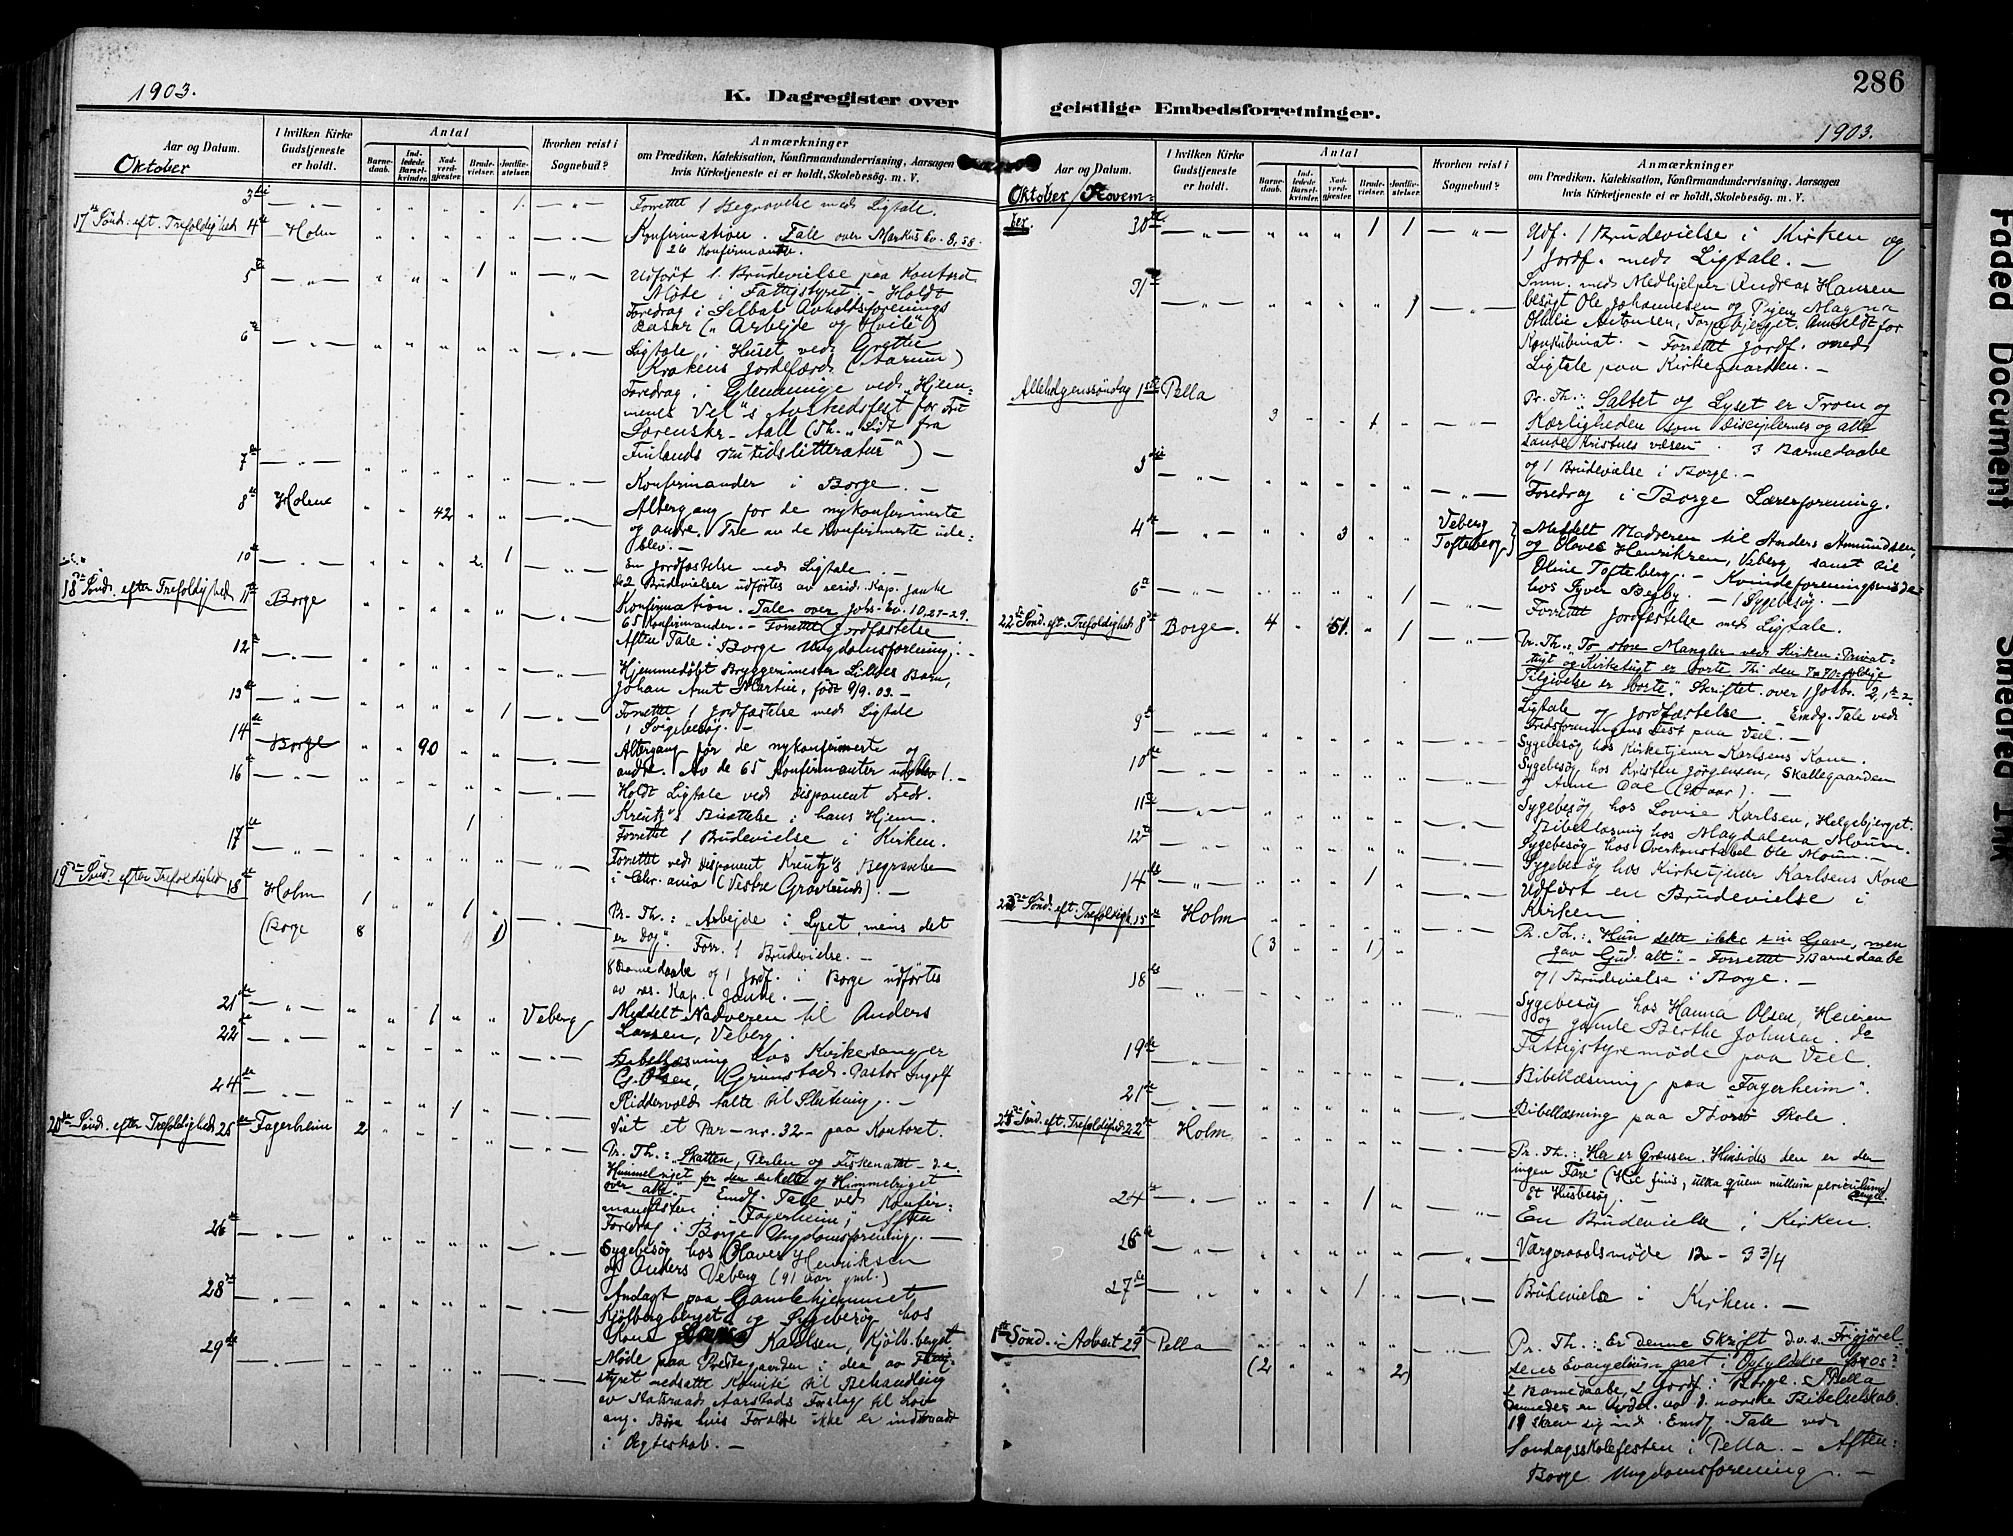 1903.
K. Dagregister over
Aar og Datum.
I hvilken Kirke Gudstjeneste er holdt.
Antal
Barne-daab.
Ind-ledede Barsel-kvinder.
Nad-verd-gjester.
Brude-vielser.
Jordfæ-stelser.
Hvorhen reist i Sognebud?
Anmærkninger
om Prædiken, Katekisation, Konfirmandundervisning, Aarsagen
hvis Kirketjeneste ei er holdt, Skolebesøg. m. V.
Oktober
3die — „ — 1. — „ — Forrettet 1 Begravelse med Ligtale.
17de Sönd. eft. Trefoldighed 4de Holm — „ — Konfirmation. Tale over Markus Ev. 8,
26 Konfirmander.
5te 1 — „ — Udfört 1 Brudevielse paa Kontoret
Møde i Fattigstyret. – Holdt
Foredrag i Selbak Avholdsforenings
Basar („Arbejde og Hvile")
6te — „ — Ligtale i Huset ved Grethe
Krokens Jordefærd (Aarum)
Foredrag i Glemminge ved „Hjem-
menes Vel"s Avskedsfest for Frk
Sørensk. Aall (Th. „Lidt fra
Finlands nutidslitteratur") –
7de — „ — Konfirmander i Borge. –
8de Holm 42 — „ — Altergang for de nykonfirmerte
og andre. Tre av de konfirmerte ude-
blev. –
10de 2 1 — „ — En Jordfæstelse med Ligtale. –
2 Brudevielser udførtes av resid. Kap. Janke
18de Sönd. efter Trefoldighed 11te Borge — „ — Konfirmation. Tale over Johs. Ev. 10, 27-29.
65 Konfirmander. – Forrettet Jordfæstelse
Aften Tale i Borge Ungdomsforening. –
12te — „ — Hjemmedøbt Bryggerimester Lilloes Barn,
Johan Arnt Martin, født 9/9. 03. –
13de 1 — „ — Forrettet 1 Jordfæstelse med Ligtale
1 Sygebesøg. –
14de Borge 90 — „ — Altergang for de nykonfirmerte og
andre. Av de 65 Konfirmanter udeblev 1. –
16de — „ — Holdt Ligtale ved Disponent Fredr.
Kreutz's Bisættelse i hans Hjem.
17de — „ — 1 Forrettet 1 Brudevielse i Kirken.
Forrettet ved Disponent Kreutz's Begravelse
i Chr.ania (Vestre Gravlund). –
19de Sönd. efter Trefoldighed 18de Holm 1 1 — „ — Pr. Th.: „Arbejde i Lyset, mens det
(Borge 8 1) er Dag". Forr. 1 Brudevielse. –
8 Barnedaabe og 1 Jordf. i Borge udførtes
av res. Kap. Janke. –
21de — „ — 1 Veberg Meddelt Nadveren til Anders
Larsen, Veberg.
22de — „ — Bibellæsning hos Kirkesanger
G. Olsen, Grimstad. Pastor Ingolf
Riddervold talte til Slutning. –
24de — „ — 1 Viet et Par – nr. 32 – paa Kontoret.
20de Sönd. efter Trefoldighed 25de Fagerheim 2 — „ — Pr. Th.: „Skatten, Perlen og Fiskenattet –
Himmelriget for den enkelte og Himmelriget
over alle". Emdg. Tale ved Konfir-
mandfesten i „Fagerheim", Aften
Foredrag i Borge Ungdomsforening. –
26de — „ — Sygebesøg hos Olaves Henriksen
og Anders Veberg (91 aar gml.)
28de — „ — Andagt paa Gamlehjemmet,
Kjølbergberget og Sygebesøg hos
Kone Karlsen, Kjølb.berget
29de — „ — Møde paa Prestegaarden i den av
styret nedsatte Komité til Behandling
av Statsraad Aarstads Forslag til Lov
ang. Børn hvis Foreldre ikke er indtraadt
i Ægteskab. –
286
geistlige Embedsforretninger.
1903.
Aar og Datum.
I hvilken Kirke Gudstjeneste er holdt.
Antal
Barne-daab.
Ind-ledede Barsel-kvinder.
Nad-verd-gjester.
Brude-vielser.
Jordfæ-stelser.
Hvorhen reist i Sognebud?
Anmærkninger
om Prædiken, Katekisation, Konfirmandundervisning, Aarsagen
hvis Kirketjeneste ei er holdt, Skolebesøg. m. V.
Oktober / Novem-
ber. 30te — „ — 1 1 — „ — Udf. 1 Brudevielse i Kirken og
1 Jordf. med Ligtale. –
31te — „ — 1 — „ — Smn. med Medhjelper Andreas Hansen
besøgt Ole Johannesen og Pigen Magna
Othilie Antonsen, Torpebjerget. Anmeldt for
Konkubinat. – Forrettet Jordf. med
Ligtale paa Kirkegaarden. –
Allehelgenssöndag 1ste Pella 3 1 — „ — Pr. Th.: Saltet og Lyset er Troen og
Kærligheden som Disciplernes og alle
sande Kristnes væsen. 3 Barnedaabe
og 1 Brudevielse i Borge. –
3die — „ — Foredrag i Borge Lærerforening.
4de — „ — 3 Veberg Tofteberg } Meddelt Nadveren til Anders Amundsen,
og Olaves Henriksen, Veberg, samt til
Oline Tofteberg. – Kvindeforeningsmøde
hos Syver Begby. – 1 Sygebesøg. –
6te 1 — „ — Forrettet Jordfæstelse med Ligtale.
22de Sönd. eft. Trefoldighed 8de Borge. 4 51. 1 — „ — Pr. Th.: „To store Mangler ved Kirken: Privat-
ligt og Kirkeligt er borte Th: den 7x70 foldige
Tilgivelse er borte". Skriftet. over 1 Johs. 2, 1-2
Ligtale og Jordfæstelse. Emdg. Tale ved
Fredsforeningens Fest paa Veel. –
9de — „ — Sygebesøg hos Kirketjener Karlsens Kone.
10de — „ — Sygebesøg hos Kristen Jörgensen, Skallegaarden
og Anne Dal (92 aar). –
11te — „ — Sygebesøg hos Lovise Karlsen, Helgebjerget.
Bibellæsning hos Magdalena Moum.
12te — „ — Sygebesøg hos Overkonstabel Ole Moum. –
Sygebesøg hos Kirketjener Karlsens Kone
14de — „ — 1 — „ — Udført en Brudevielse i
Kirken
23de Sönd. eft. Trefoldigh. 15de Holm — „ — Pr. Th.: „Hun delte ikke sin Gave, men
(3 1) gav Gud alt". – Forrettet 3 Barnedaabe
og 1 Brudevielse i Borge. –
18de — „ — Sygebesøg hos Hanna Olsen, Heieren
og gamle Berthe Johnsen. do
Fattigstyremøde paa Veel.
19de — „ — Bibellæsning paa „Fagerheim".
21de — „ — Bibellæsning paa Thorsø Skole.
24de Sönd. eft. Trefoldighed 22de Holm — „ — Pr. Th.: „Her er Grænsen. Hinsides den er der
ingen Fare" (Hic finis, ultra quem nullum periculum)
Et Husbesøg. –
24de — „ — 1 En Brudevielse i Kirken.
26de — „ — Værgeraadsmøde 12 – 3 3/4
27de — „ — 1 — „ — Brudevielse i Kirken. –
1ste Sönd. i Advent 29de Pella (2 2) — „ — Pr. Th.: „Er denne Skrift d.v.s. Frigjørel-
sens Evangelium gaat i Opfyldelse for os?
2 Barnedaabe, 2 Jordf. i Borge. I Pella
dannedes en Avdel. av d. norske Bibelselskab.
19 skrev sig ind. Emdg. Tale ved
Søndagsskolefesten i Pella. – Aften:
Borge Ungdomsforening. –
Faded Document
Smeared Ink